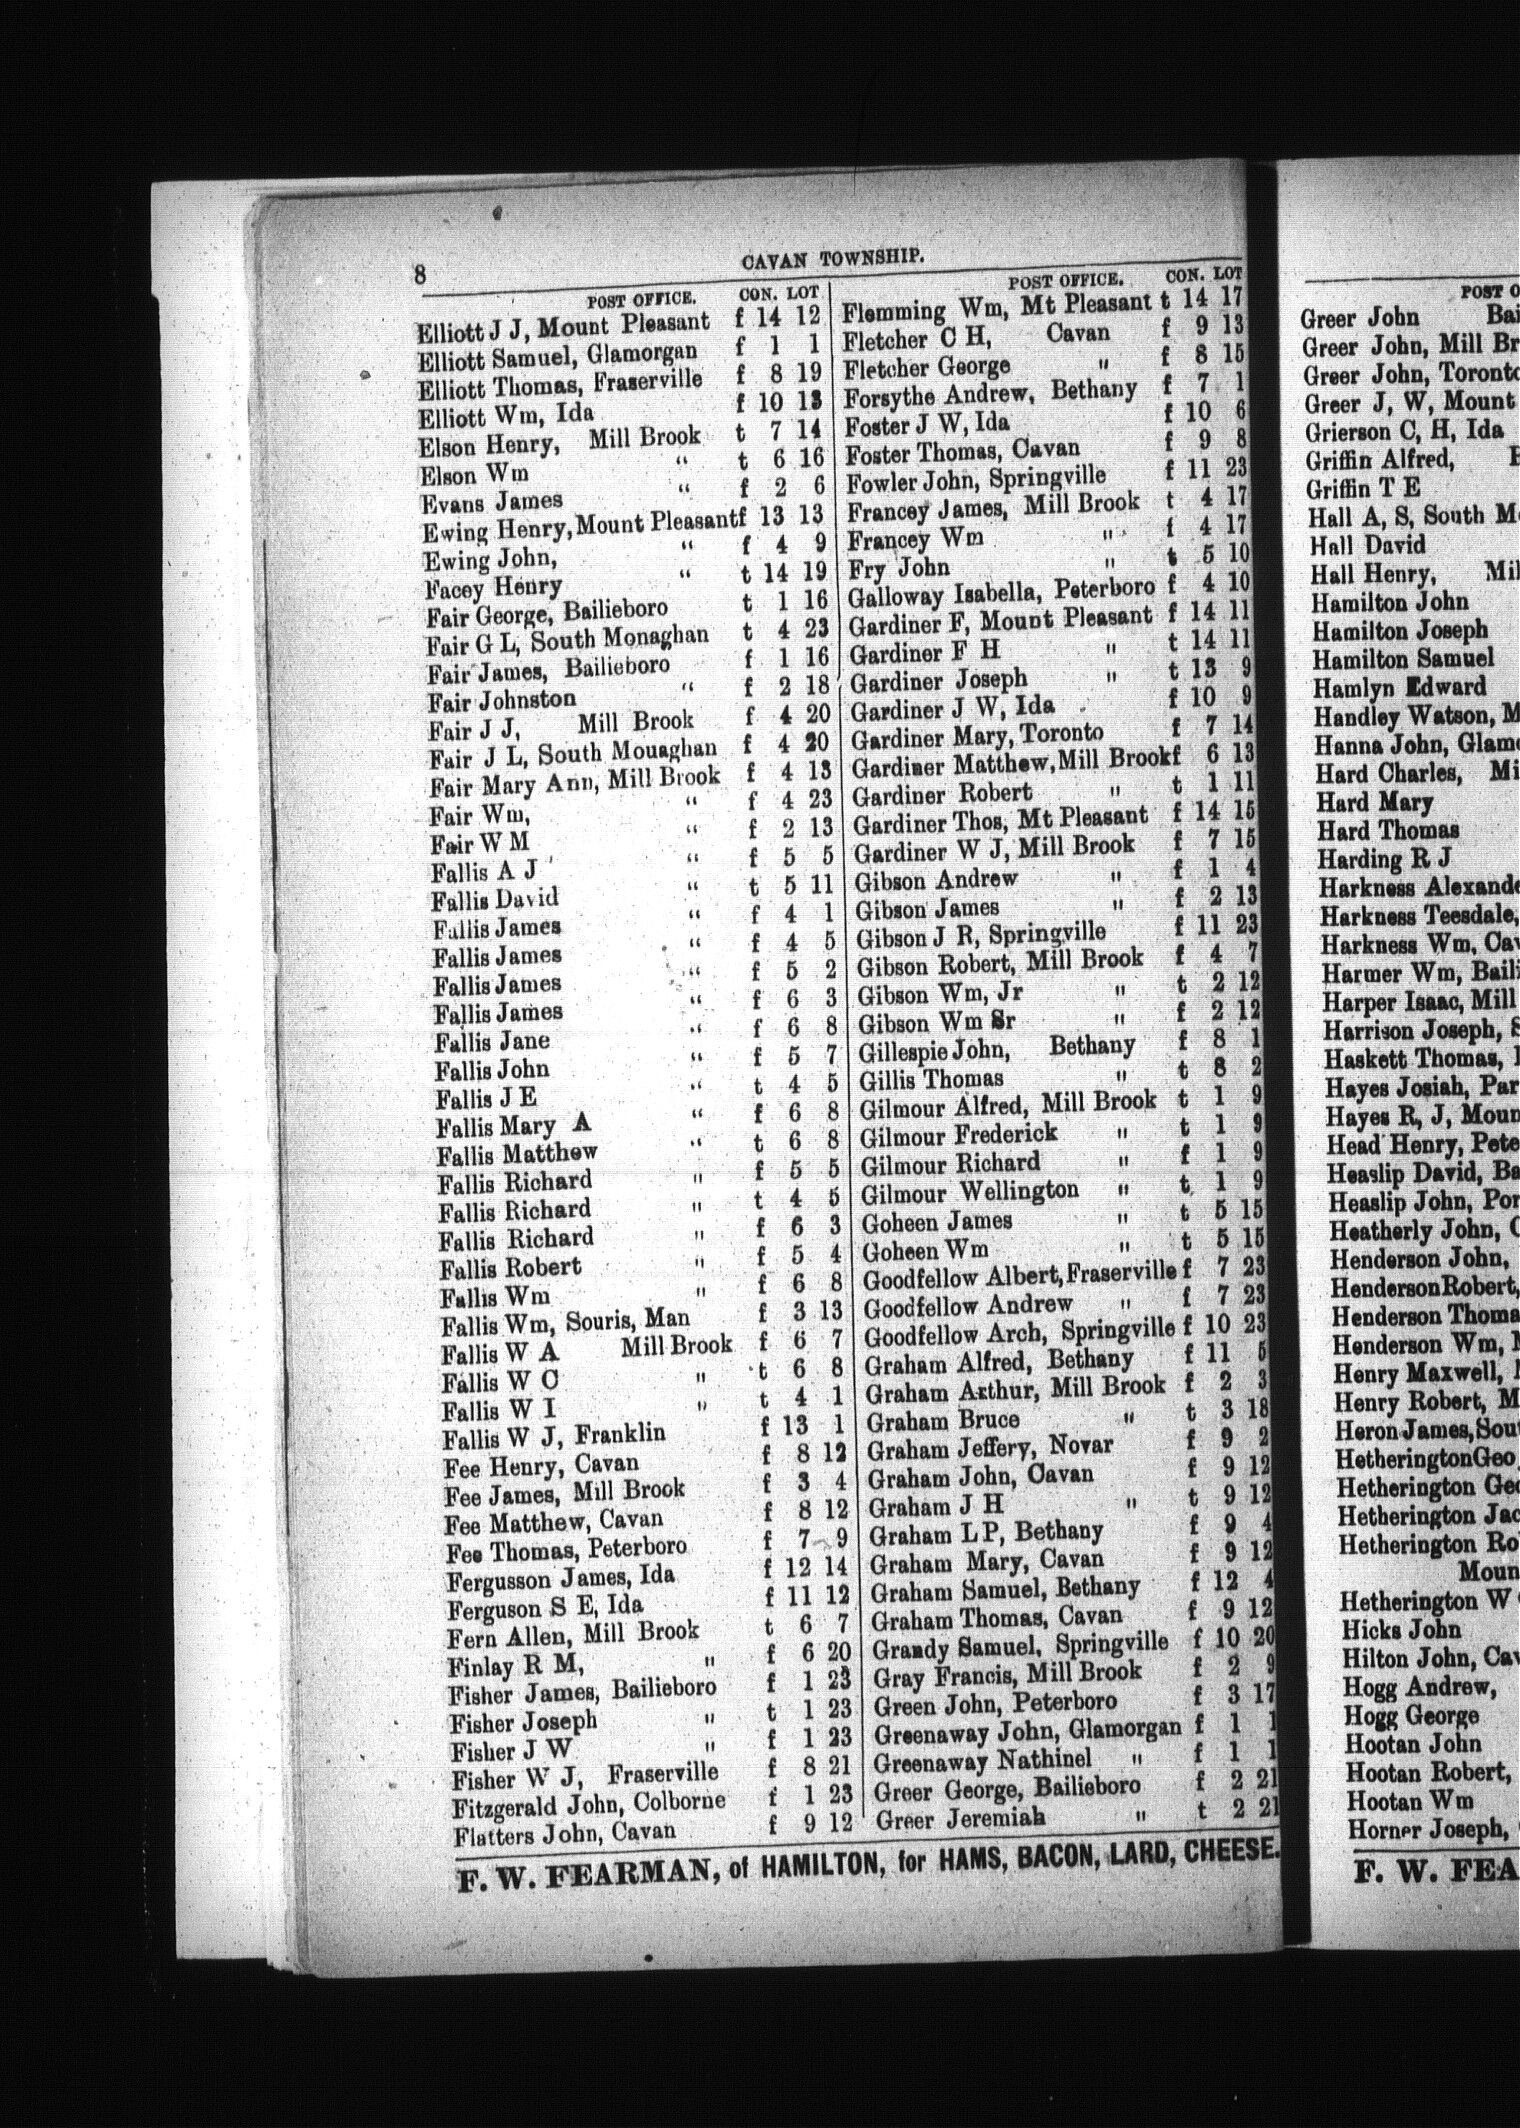 8
CAVAN TOWNSHIP.
POST OFFICE. CON. LOT
Elliott J J, Mount Pleasant f 14 12
Elliott Samuel, Glamorgan f 1 1
Elliott Thomas, Fraserville f 8 19
Elliott Wm, Ida f 10 13
Elson Henry, Mill Brook t 7 14
Elson Wm " t 6 16
Evans James " f 2 6
Ewing Henry, Mount Pleasant f 13 13
Ewing John, " f 4 9
Facey Henry " t 14 19
Fair George, Bailieboro t 1 16
Fair G L, South Monaghan t 4 23
Fair James, Bailieboro f 1 16
Fair Johnston " f 2 18
Fair J J, Mill Brook f 4 20
Fair J L, South Mouaghan f 4 20
Fair Mary Ann, Mill Brook f 4 13
Fair Wm, " f 4 23
Fair W M " f 2 13
Fallis A J " f 5 5
Fallis David " t 5 11
Fallis James " f 4 1
Fallis James " f 4 5
Fallis James " f 5 2
Fallis James " f 6 3
Fallis Jane " f 6 8
Fallis John " f 5 7
Fallis J E " t 4 5
Fallis Mary A " f 6 8
Fallis Matthew " t 6 8
Fallis Richard " f 5 5
Fallis Richard " t 4 5
Fallis Richard " f 6 3
Fallis Robert " f 5 4
Fallis Wm " f 6 8
Fallis Wm, Souris, Man f 3 13
Fallis W A Mill Brook f 6 7
Fallis W C " t 6 8
Fallis W I " t 4 1
Fallis W J, Franklin f 13 1
Fee Henry, Cavan f 8 12
Fee James, Mill Brook f 3 4
Fee Matthew, Cavan f 8 12
Fee Thomas, Peterboro f 7 9
Fergusson James, Ida f 12 14
Ferguson S E, Ida f 11 12
Fern Allen, Mill Brook t 6 7
Finlay R M, " f 6 20
Fisher James, Bailieboro f 1 23
Fisher Joseph " t 1 23
Fisher J W " f 1 23
Fisher W J, Fraserville f 8 21
Fitzgerald John, Colborne f 1 23
Flatters John, Cavan f 9 12
POST OFFICE. CON. LOT
Flemming Wm, Mt Pleasant t 14 17
Fletcher C H, Cavan f 9 13
Fletcher George " f 8 15
Forsythe Andrew, Bethany f 7 1
Foster J W, Ida f 10 6
Foster Thomas, Cavan f 9 8
Fowler John, Springville f 11 23
Francey James, Mill Brook t 4 17
Francey Wm " f 4 17
Fry John " t 5 10
Galloway Isabella, Peterboro f 4 10
Gardiner F, Mount Pleasant f 14 11
Gardiner F H " t 14 11
Gardiner Joseph " t 13 9
Gardiner J W, Ida f 10 9
Gardiner Mary, Toronto f 7 14
Gardiner Matthew, Mill Brook f 6 13
Gardiner Robert " t 1 11
Gardiner Thos, Mt Pleasant f 14 15
Gardiner W J, Mill Brook f 7 15
Gibson Andrew " f 1 4
Gibson James " f 2 13
Gibson J R, Springville f 11 23
Gibson Robert, Mill Brook f 4 7
Gibson Wm, Jr " t 2 12
Gibson Wm Sr " f 2 12
Gillespie John, Bethany f 8 1
Gillis Thomas " t 8 2
Gilmour Alfred, Mill Brook t 1 9
Gilmour Frederick " t 1 9
Gilmour Richard " f 1 9
Gilmour Wellington " t 1 9
Goheen James " t 5 15
Goheen Wm " t 5 15
Goodfellow Albert, Fraserville f 7 23
Goodfellow Andrew " f 7 23
Goodfellow Arch, Springville f 10 23
Graham Alfred, Bethany f 11 5
Graham Arthur, Mill Brook f 2 3
Graham Bruce " t 3 18
Graham Jeffery, Novar f 9 2
Graham John, Cavan f 9 12
Graham J H " t 9 12
Graham L P, Bethany f 9 4
Graham Mary, Cavan f 9 12
Graham Samuel, Bethany f 12 4
Graham Thomas, Cavan f 9 12
Grandy Samuel, Springville f 10 20
Gray Francis, Mill Brook f 2 9
Green John, Peterboro f 3 17
Greenaway John, Glamorgan f 1 1
Greenaway Nathinel " f 1 1
Greer George, Bailieboro f 2 21
Greer Jeremiah " t 2 21
F. W. FEARMAN, of HAMILTON, for HAMS, BACON, LARD, CHEESE.
POST O
Greer John Bai
Greer John, Mill Br
Greer John, Toronto
Greer J, W, Mount
Grierson C, H, Ida
Griffin Alfred,
Griffin T E
Hall A, S, South M
Hall David
Hall Henry, Mil
Hamilton John
Hamilton Joseph
Hamilton Samuel
Hamlyn Edward
Handley Watson, M
Hanna John, Glam
Hard Charles, Mi
Hard Mary
Hard Thomas
Harding R J
Harkness Alexande
Harkness Teesdale,
Harkness Wm, Cav
Harmer Wm, Baili
Harper Isaac, Mill
Harrison Joseph, S
Haskett Thomas,
Hayes Josiah, Par
Hayes R, J, Moun
Head Henry, Pete
Heaslip David, Ba
Heaslip John, Por
Heatherly John, C
Henderson John,
Henderson Robert,
Henderson Thoma
Henderson Wm,
Henry Maxwell,
Henry Robert, M
Heron James, Sout
Hetherington Geo
Hetherington Geo
Hetherington Jac
Hetherington Ro
Moun
Hetherington W
Hicks John
Hilton John, Cav
Hogg Andrew,
Hogg George
Hootan John
Hootan Robert,
Hootan Wm
Horner Joseph,
F. W. FEA